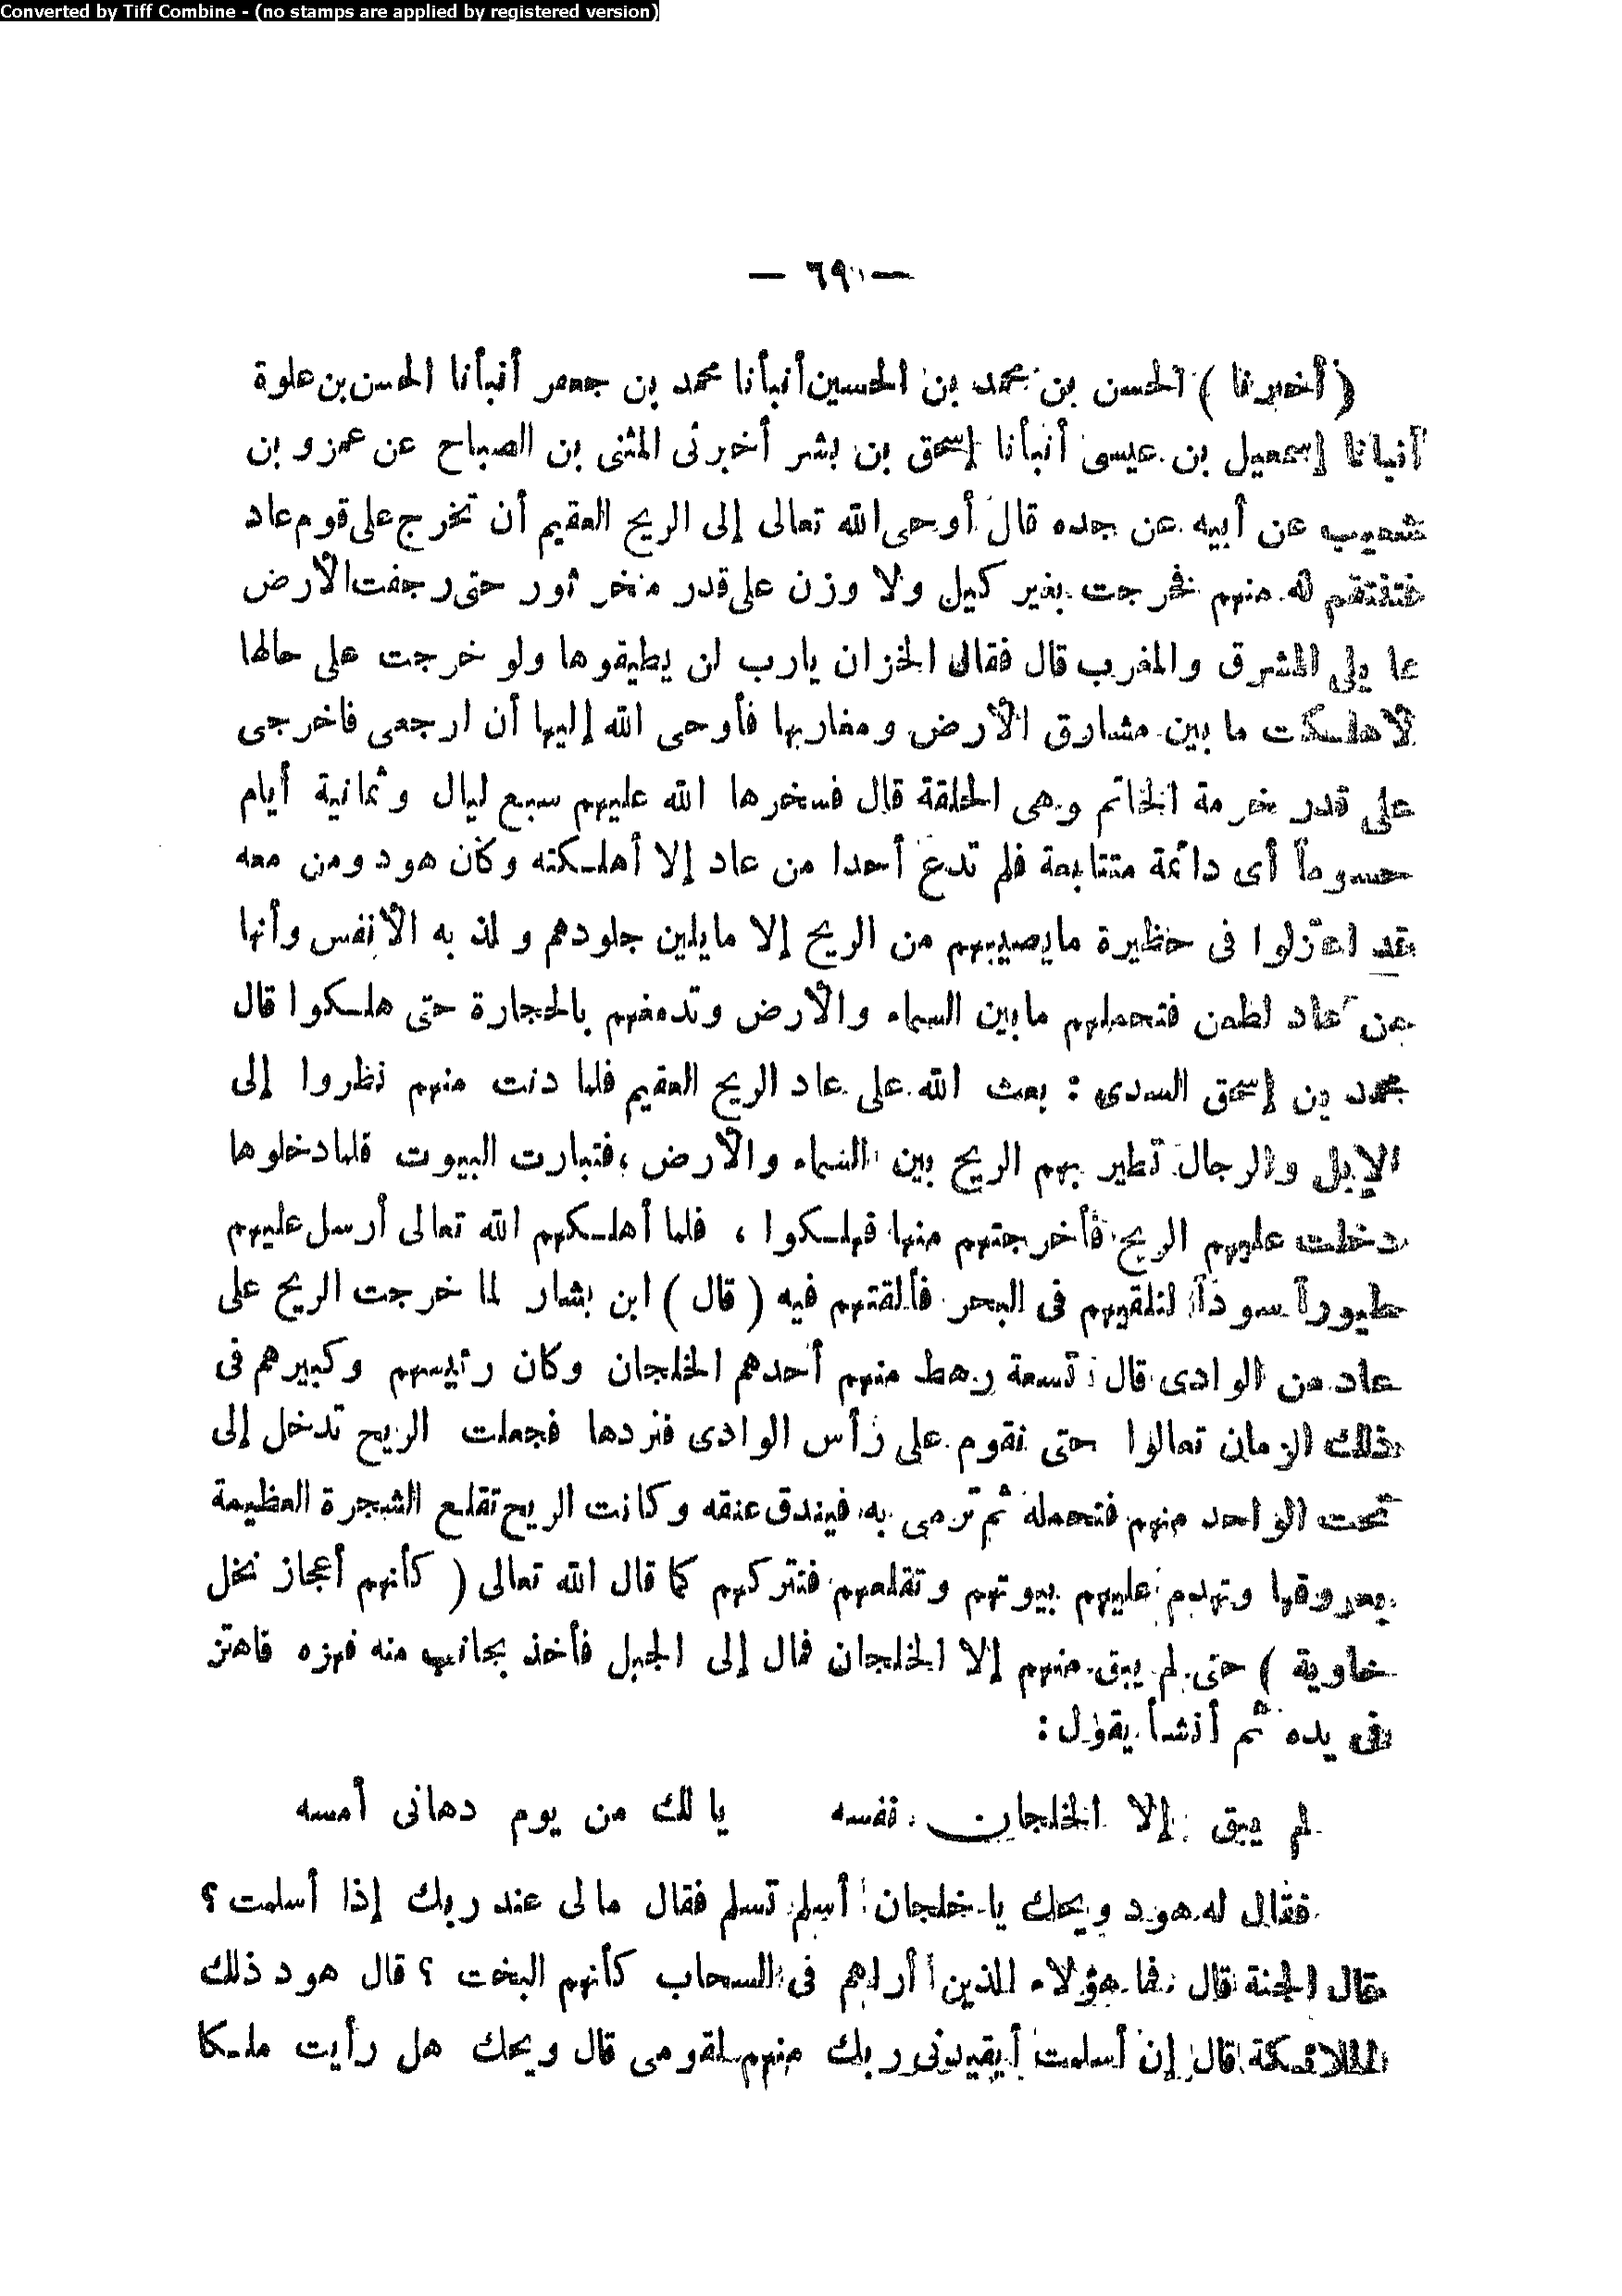 Converted by Tiff Combine - (no stamps are applied by registered version)
— ٦٩ —
(أخبرنا) الحسن بن محمد بن الحسين أنبأنا محمد بن جعفر أنبأنا الحسن بن علوة
أنبأنا إسمعيل بن عيسى أنبأنا إسحق بن بشر أخبرنى المثنى بن الصباح عن عمرو بن
شعيب عن أبيه عن جده قال أوحى الله تعالى إلى الريح العقيم أن تخرج على قوم عاد
فتنتقم له منهم فخرجت بغير كيل ولا وزن على قدر منخر ثور حتى رجفت الأرض
مما يلى المشرق والمغرب قال فقال الخزان يارب لن يطيقوها ولو خرجت على حالها
لأهلكت ما بين مشارق الأرض ومغاربها فأوحى الله إليها أن ارجعى فاخرجى
على قدر خرمة الخاتم وهى الحلقة قال فسخرها الله عليهم سبع ليال وثمانية أيام
حسوماً أى دائمة متتابعة فلم تدع أحدا من عاد إلا أهلكته وكان هود ومن معه
قد اعتزلوا فى حظيرة مايصيبهم من الريح إلا مايلين جلودهم ولذ به الأنفس وأنها
من عاد لظعن فتحملهم مابين السماء والأرض وتدمغهم بالحجارة حتى هلكوا قال
محمد بن إسحق السدى : بعث الله على عاد الريح العقيم فلما دنت منهم نظروا إلى
الإبل والرجال تطير بهم الريح بين السماء والأرض ، فتبارت البيوت فلمادخلوها
دخلت عليهم الريح فأخرجتهم منها فهلكوا ، فلما أهلكهم الله تعالى أرسل عليهم
طيوراً سوداً لتلقيهم فى البحر فألقتهم فيه (قال) ابن بشار لما خرجت الريح على
عاد من الوادى قال تسعة رهط منهم أحدهم الخلجان وكان رئيسهم وكبيرهم فى
ذلك الزمان تعالوا حتى نقوم على رأس الوادى فنردها فجعلت الريح تدخل إلى
تحت الواحد منهم فتحمله ثم ترمى به فيندق عنقه وكانت الريح تقلع الشجرة العظيمة
بعروقها وتهدم عليهم بيوتهم وتقلعهم فتتركهم كما قال الله تعالى (كأنهم أعجاز نخل
خاوية) حتى لم يبق منهم إلا الخلجان فمال إلى الجبل فأخذ بجانب منه فهزه فاهتز
فى يده ثم أنشأ يقول :
لم يبق إلا الخلجان نفسه يا لك من يوم دهانى أمسه
فقال له هود ويحك يا خلجان أسلم تسلم فقال مالى عند ربك إذا أسلمت ؟
قال الجنة قال فما هؤلاء الذين أراهم فى السحاب كأنهم البخت ؟ قال هود ذلك
الملائكة قال إن أسلمت أيقيدنى ربك منهم لقومى قال ويحك هل رأيت ملكا